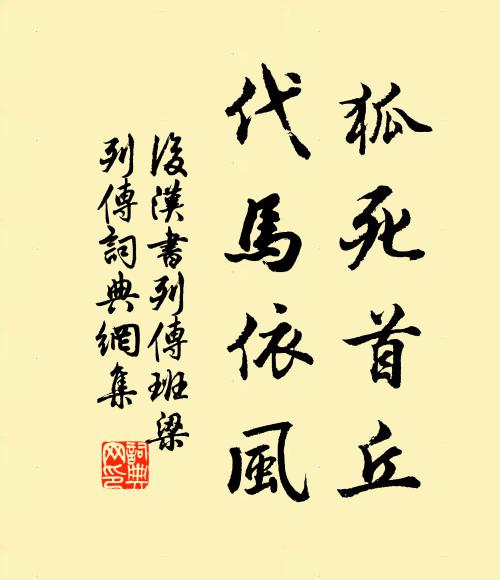 狐死首丘
代馬依風
後漢書列傳班梁
列傳詞典網集
詞典网印